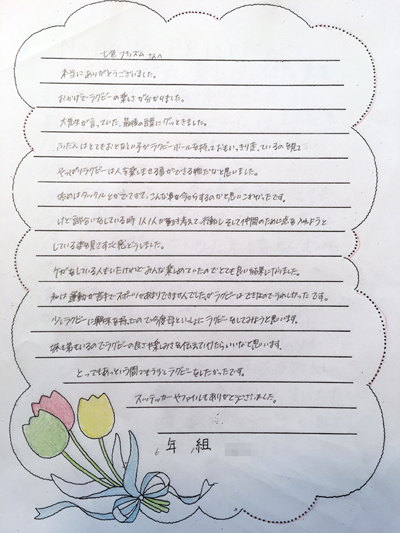 七色プリズム さんへ
本当にありがとうございました。
おかげでラグビーの楽しさが分かりました。
大先生が言っていた、最後の言葉にグッときました。
ふだんはとてもおとなしい子がラグビーボールを持っておもいっきり走っているのを見て
やっぱりラグビーは人を楽しませる事ができる物だなと思いました。
初めはタックルとかでてきて、こんな事が今からするのかと思いこわかったです。
けど試合をしている時 1人1人が動きを考えて行動し そして仲間のために点を入れようと
している姿を見てすごく感どうしました。
ケガをしている人もいたけれど みんな楽しめていたのでとても良い結果になりました。
私は運動が苦手でスポーツがあまりできませんでしたが ラグビーはできたのでうれしかったです。
少しラグビーに興味を持ったので今度母といっしょに ラグビーをしてみようと思います。
妹も弟もいるのでラグビーの良さや楽しみさを伝えていけたらいいなと思います。
とってもあっという間でもう少しラグビーをしたかったです。
ステッカーやファイルもありがとうございました。
6年 組